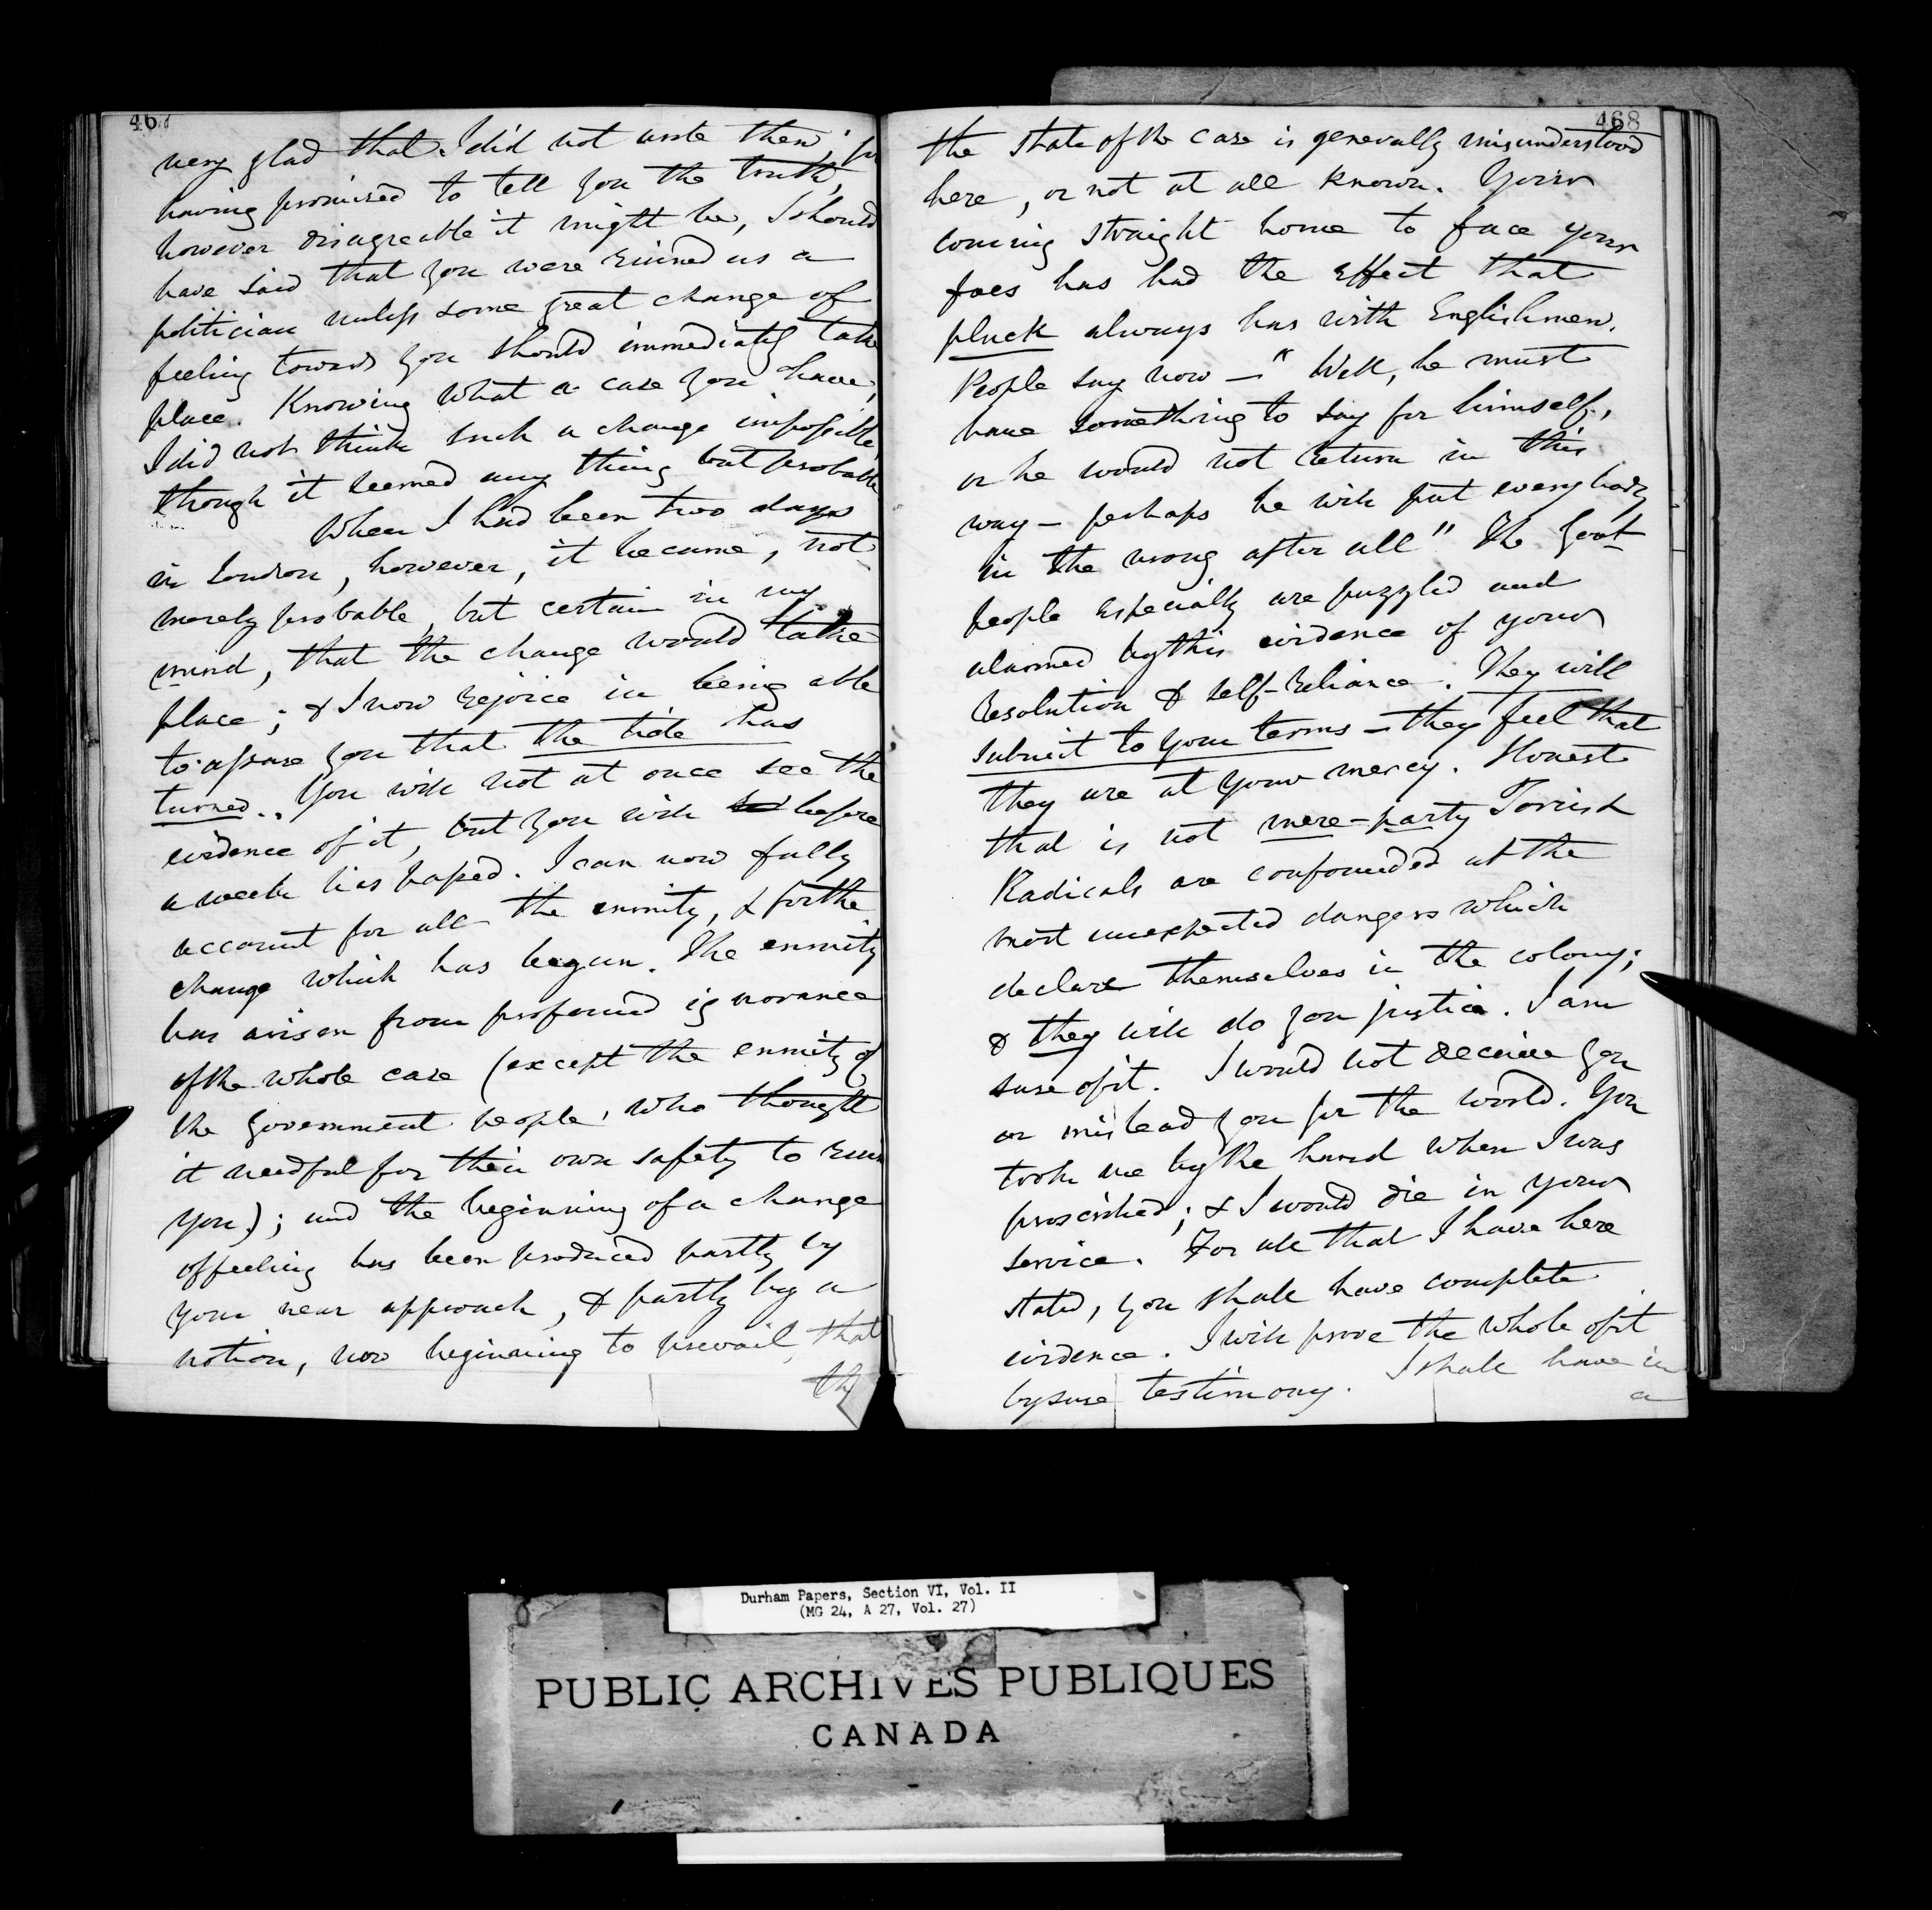 467
very glad that I did not write then; for
having promised to tell you the truth,
however disagreable it might be, I should
have said that you were ruined as a
politician unless some great change of
feeling towards you should immediately take
place. Knowing what a case you have,
I did not think such a change impossible,
though it seemed any thing but probable
When I had been two days
in London, however, it became, not
merely probable, but certain in my
mind, that the change would take
place; & I now rejoice in being able
to assure you that the tide has
turned.. You will not at once see the
evidence of it, but you will before
a week has lapsed. I can now fully
account for all the enmity, & for the
change which has begun. The enmity
has arisen from profound ignorance
of the whole case (except the enmity of
the Government people, who thought
it needful for their own safety to ruin
you); and the beginning of a change
of feeling has been produced partly by
your near approach, & partly by a
notion, now beginning to prevail, that
the
468
the state of the case is generally misunderstood
here, or not at all known. Your
coming straight home to face your
foes has had the effect that
pluck always has with Englishmen.
People say now — "Well, he must
have something to say for himself,
or he would not return in this
way — perhaps he will put everybody
in the wrong after all" The Govt
people especially are puzzled and
alarmed by this evidence of your
resolution & self-reliance. They will
submit to your terms — they feel that
they are at your mercy. Honest
that is not mere-party Tories &
Radicals are confounded at the
most unexpected dangers which
declare themselves in the colony;
& they will do you justice. I am
sure of it. I would not deceive you
or mislead you for the world. You
took me by the hand when I was
proscribed; & I would die in your
service. For all that I have here
stated, you shall have complete
evidence. I will prove the whole of it
by sure testimony. I shall have in
a
Durham Papers, Section VI, Vol. II
(MG 24, A 27, Vol. 27)
PUBLIC ARCHIVES PUBLIQUES
CANADA